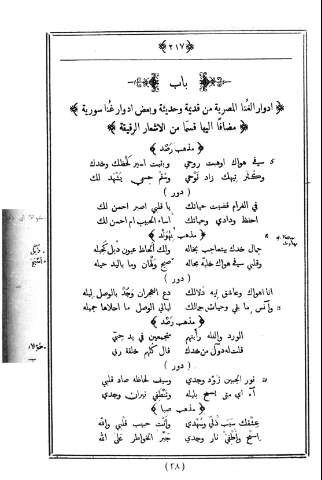 ﴿٢١٧﴾
﴿ باب ﴾
﴿ ادوار الغنا المصرية من قديمة وحديثة وبعض ادوار غنا سورية ﴾
﴿ مضافا اليها قسما من الاشعار الرقيقة ﴾
﴿ مذهب رصد ﴾
في هواك اوهبت روحي وبقيت اسير لحظك وخدك
وكثر تيهك زاد نوحي وسقم جسمي يشهد لك
( دور )
في الغرام قضيت حياتك يا قلبي اصبر احسن لك
احفظ ودادي وحياتك انساء الحبيب ام احسن لك
﴿ مذهب نهوند ﴾
جمال خدك يتعاجب بخاله ولك الحاظ عيون دبل كحيله
وقلبي سيفي هواك خليه بحاله صبح ولهان وما باليد حيله
( دور )
انا اهواك وعاشق تيه دلالك دع الهجران وجد بالوصل ليله
وآنس ما بي وحياة جمالك ليالي الوصل ما احلاها جميله
﴿ مذهب رصد ﴾
الورد والفله رأيتهم مجتمعين في يد حبي
قلت له دول من خدك قال كلهم خلقة ربي
( دور )
نور الجبين زود وجدي وسيف لحاظه صاد قلبي
آه اي متى يسمح بليله وتنطفي نيران وجدي
﴿ مذهب صبا ﴾
عشقك سبب ذلي وسهدي وانت حبيب قلبي والله
اسمح واطفي نار وجدي جبر الخواطر على الله
(٢٨)